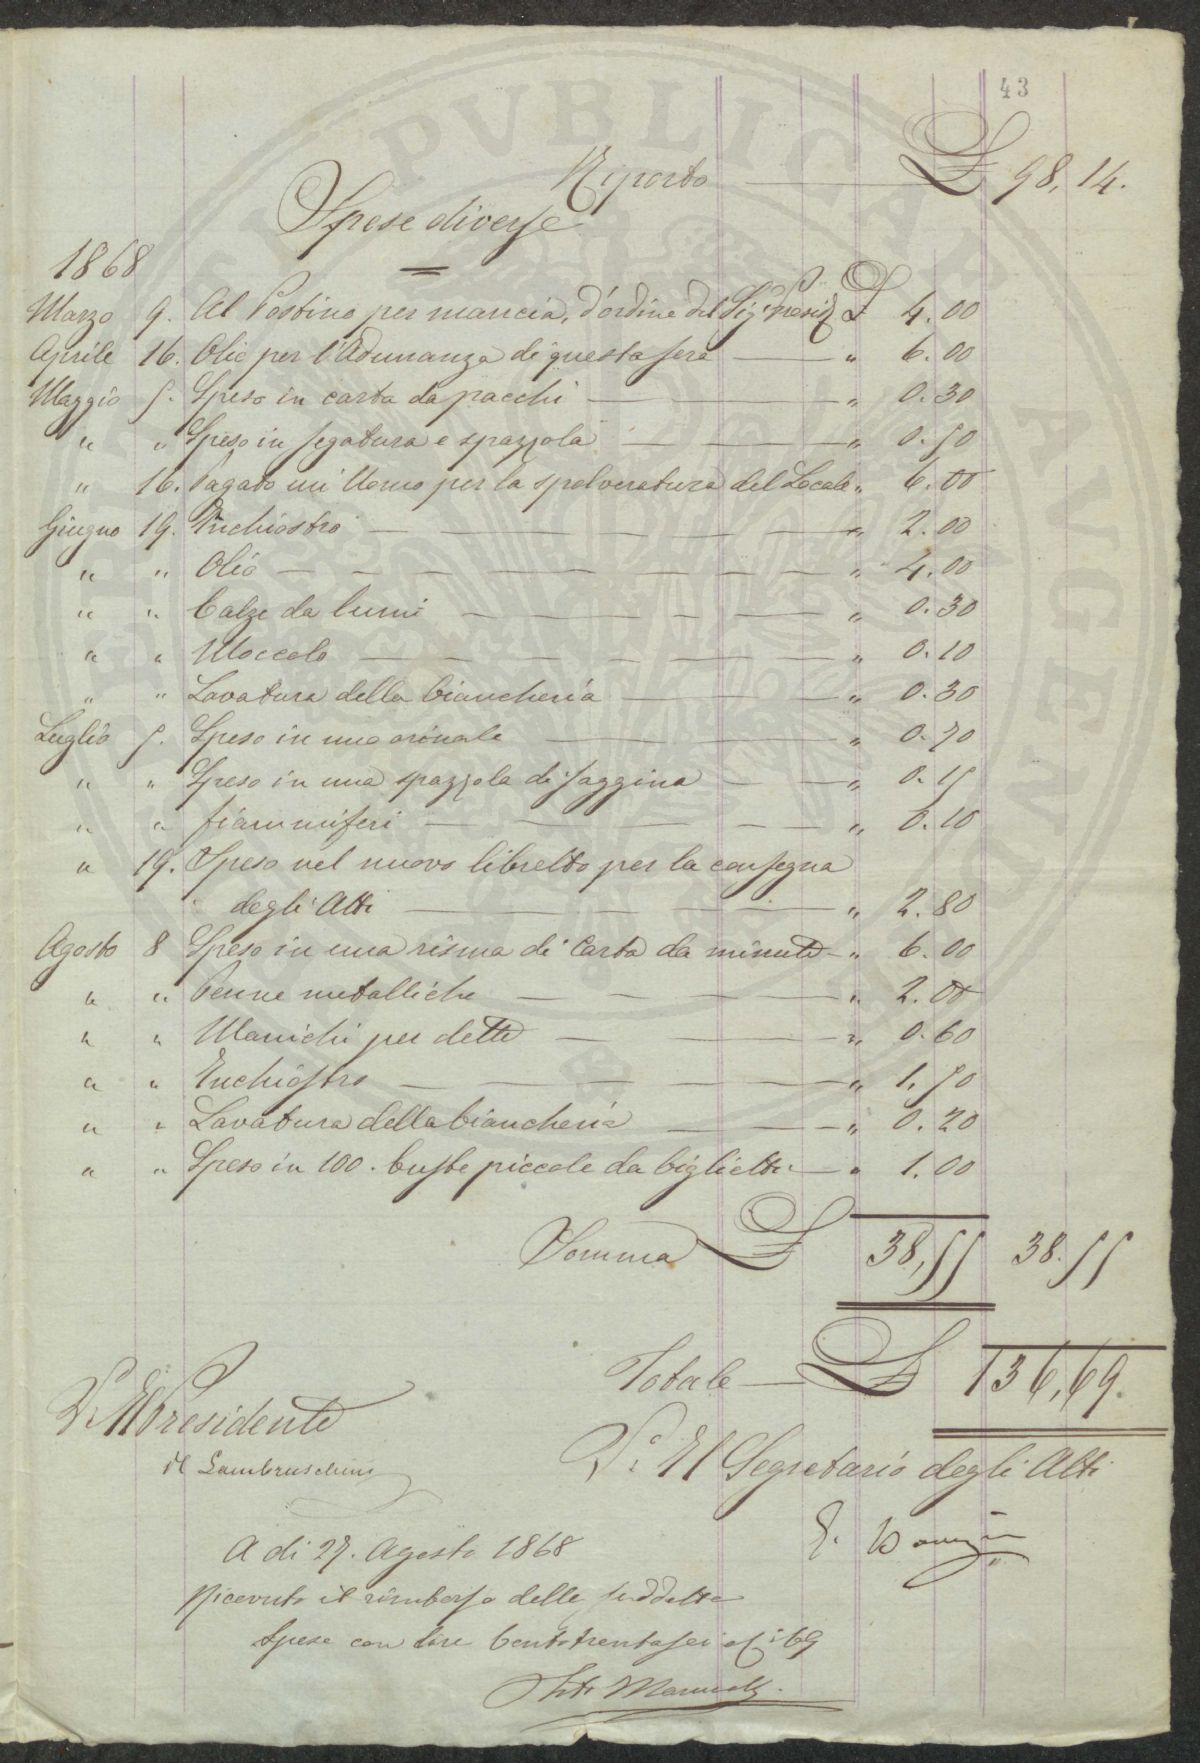 43
Riporto £ 98,14.
Spese diverse
1868
Marzo 9. Al Postino per mancia, d'ordine del Sigr. Presid. £ 4.00
Aprile 16. Olio per l'Adunanza di questa sera — " 6.00
Maggio 5. Speso in carta da pacchi — " 0.30
" " Speso in segatura e spazzola — " 0.50
" 16. Pagato un Uomo per la spolveratura del Locale " 6.00
Giugno 19. Inchiostro — " 2.00
" " Olio — " 4.00
" " Calze da lumi — " 0.30
" " Moccolo — " 0.10
" " Lavatura della biancheria — " 0.30
Luglio 5. Speso in uno orinale — " 0.70
" " Speso in una spazzola di saggina — " 0.15
" " fiammiferi — " 0.10
" 19. Speso nel nuovo libretto per la consegna
degli Atti — " 2.80
Agosto 8 Speso in una risma di Carta da minute — " 6.00
" " Penne metalliche — " 2.00
" " Manichi per dette — " 0.60
" " Inchiostro — " 1.50
" " Lavatura della biancheria — " 0.20
" " Speso in 100. buste piccole da biglietti — " 1.00
Somma £ 38,55 38.55
Totale — £ 136,69.
Vo. Il Presidente
Lambruschini
Vo. Il Segretario degli Atti
A di 27. Agosto 1868
Ricevuto il rimborso delle suddette
Spese con lire Centotrentasei e C: 69
PUBLICAE AUGENDAE